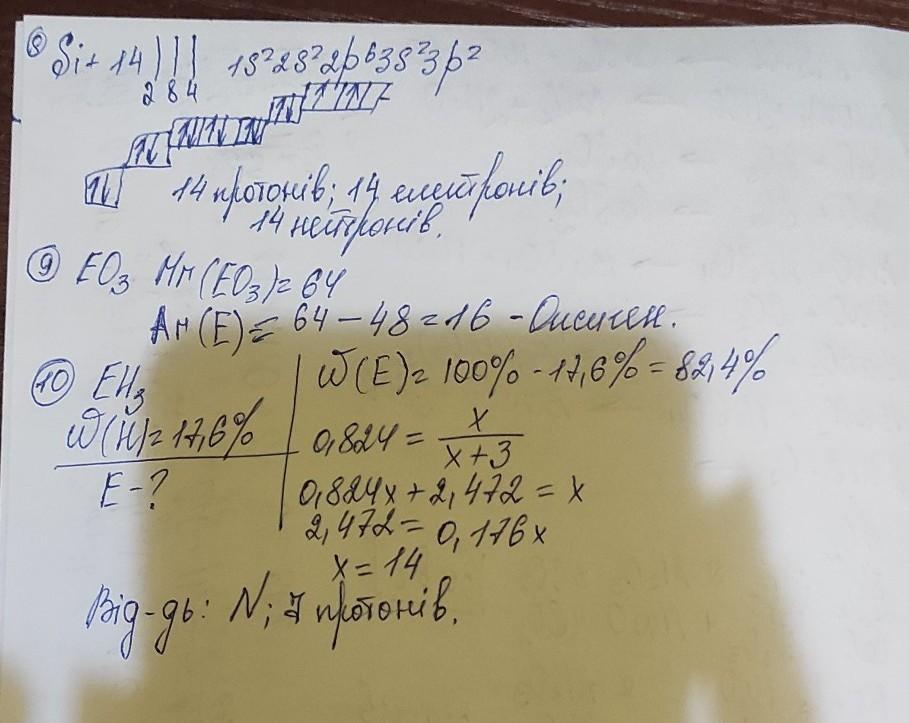 ⑧ Si +14 ) ) ) 1s²2s²2p⁶3s²3p²
2 8 4
14 протонів; 14 електронів;
14 нейтронів.
⑨ EO₃ Mr(EO₃)=64
Ar(E)= 64-48=16 - Оксиген.
⑩ EH₃ W(E)=100%-17,6%=82,4%
W(H)=17,6% 0,824 = x/x+3
E-? 0,824x+2,472=x
2,472=0,176x
x=14
Від-дь: N; 7 протонів.